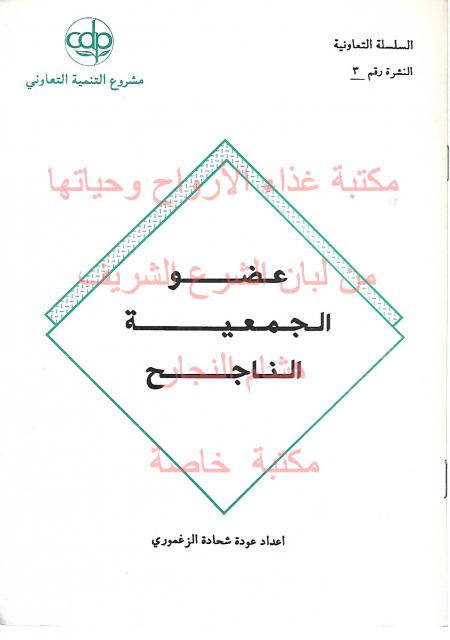 السلسلة التعاونية
النشرة رقم ٣
cdp
مشروع التنمية التعاوني
مكتبة غذاء الارواح وحياتها
عضو
من لبان الشرع الشريف
الجمعية
الناجح
هشام النجار
مكتبة خاصة
اعداد عودة شحادة الزغموري